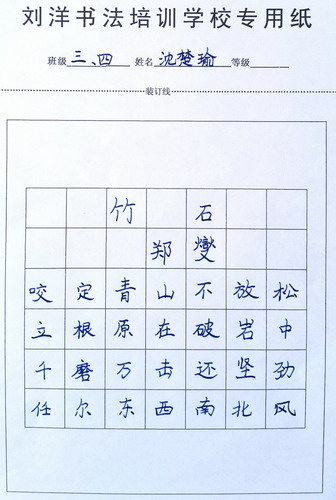 刘洋书法培训学校专用纸
班级三、四 姓名沈楚瑜 等级
装订线
竹石
郑燮
咬定青山不放松
立根原在破岩中
千磨万击还坚劲
任尔东西南北风